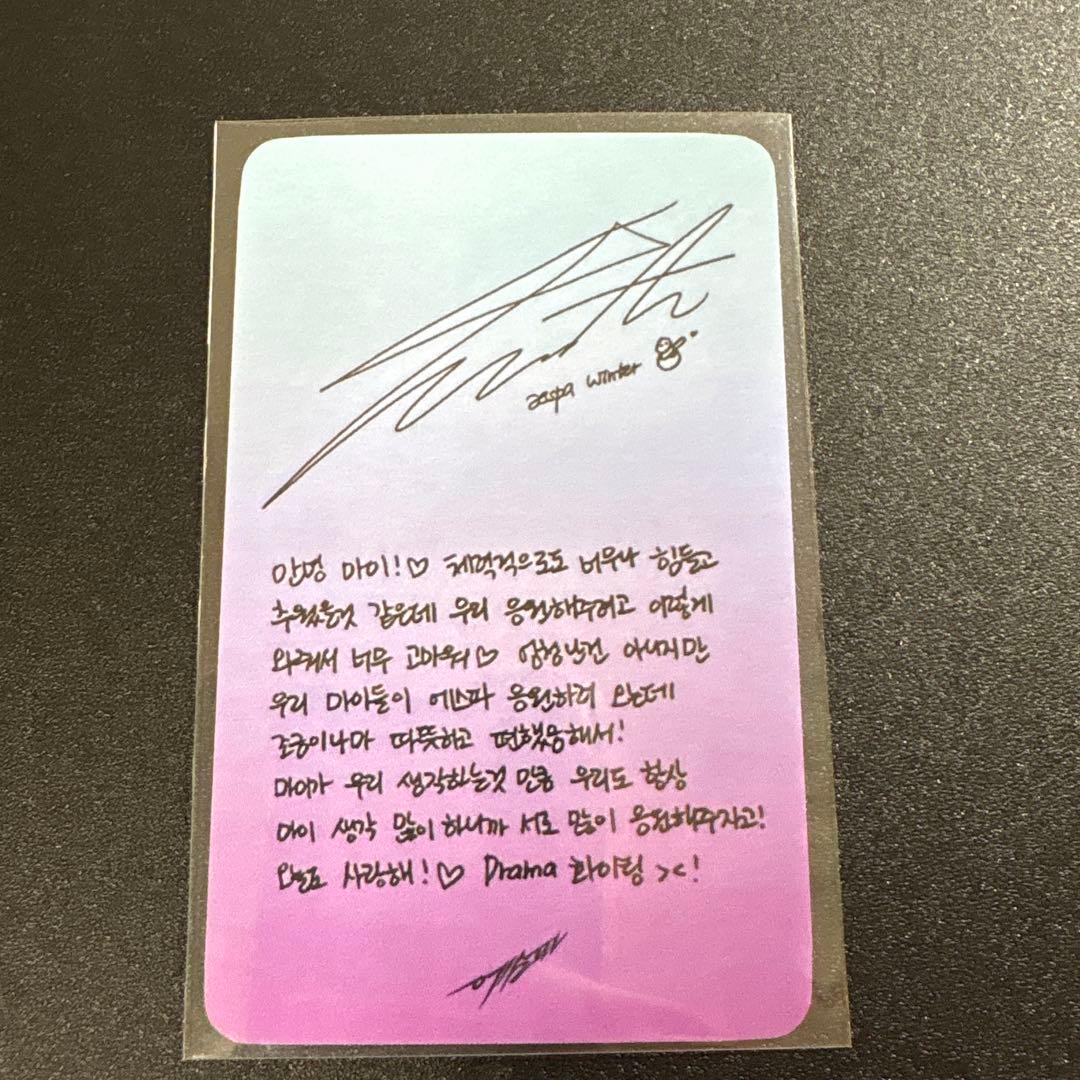 aespa winter
안녕 마이!♡ 체력적으로도 너무나 힘들고
추웠을것 같은데 우리 응원해주려고 이렇게
와줘서 너무 고마워♡ 엄청난건 아니지만
우리 마이들이 에스파 응원하러 왔는데
조금이나마 따뜻하고 편했음해서!
마이가 우리 생각하는것 만큼 우리도 항상
마이 생각 많이 하니까 서로 많이 응원해주자고!
오늘도 사랑해!♡ Drama 화이팅 ><!
에스파